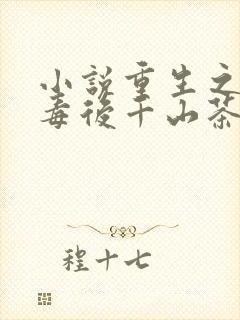 小说重生之
毒後千山茶
程十七